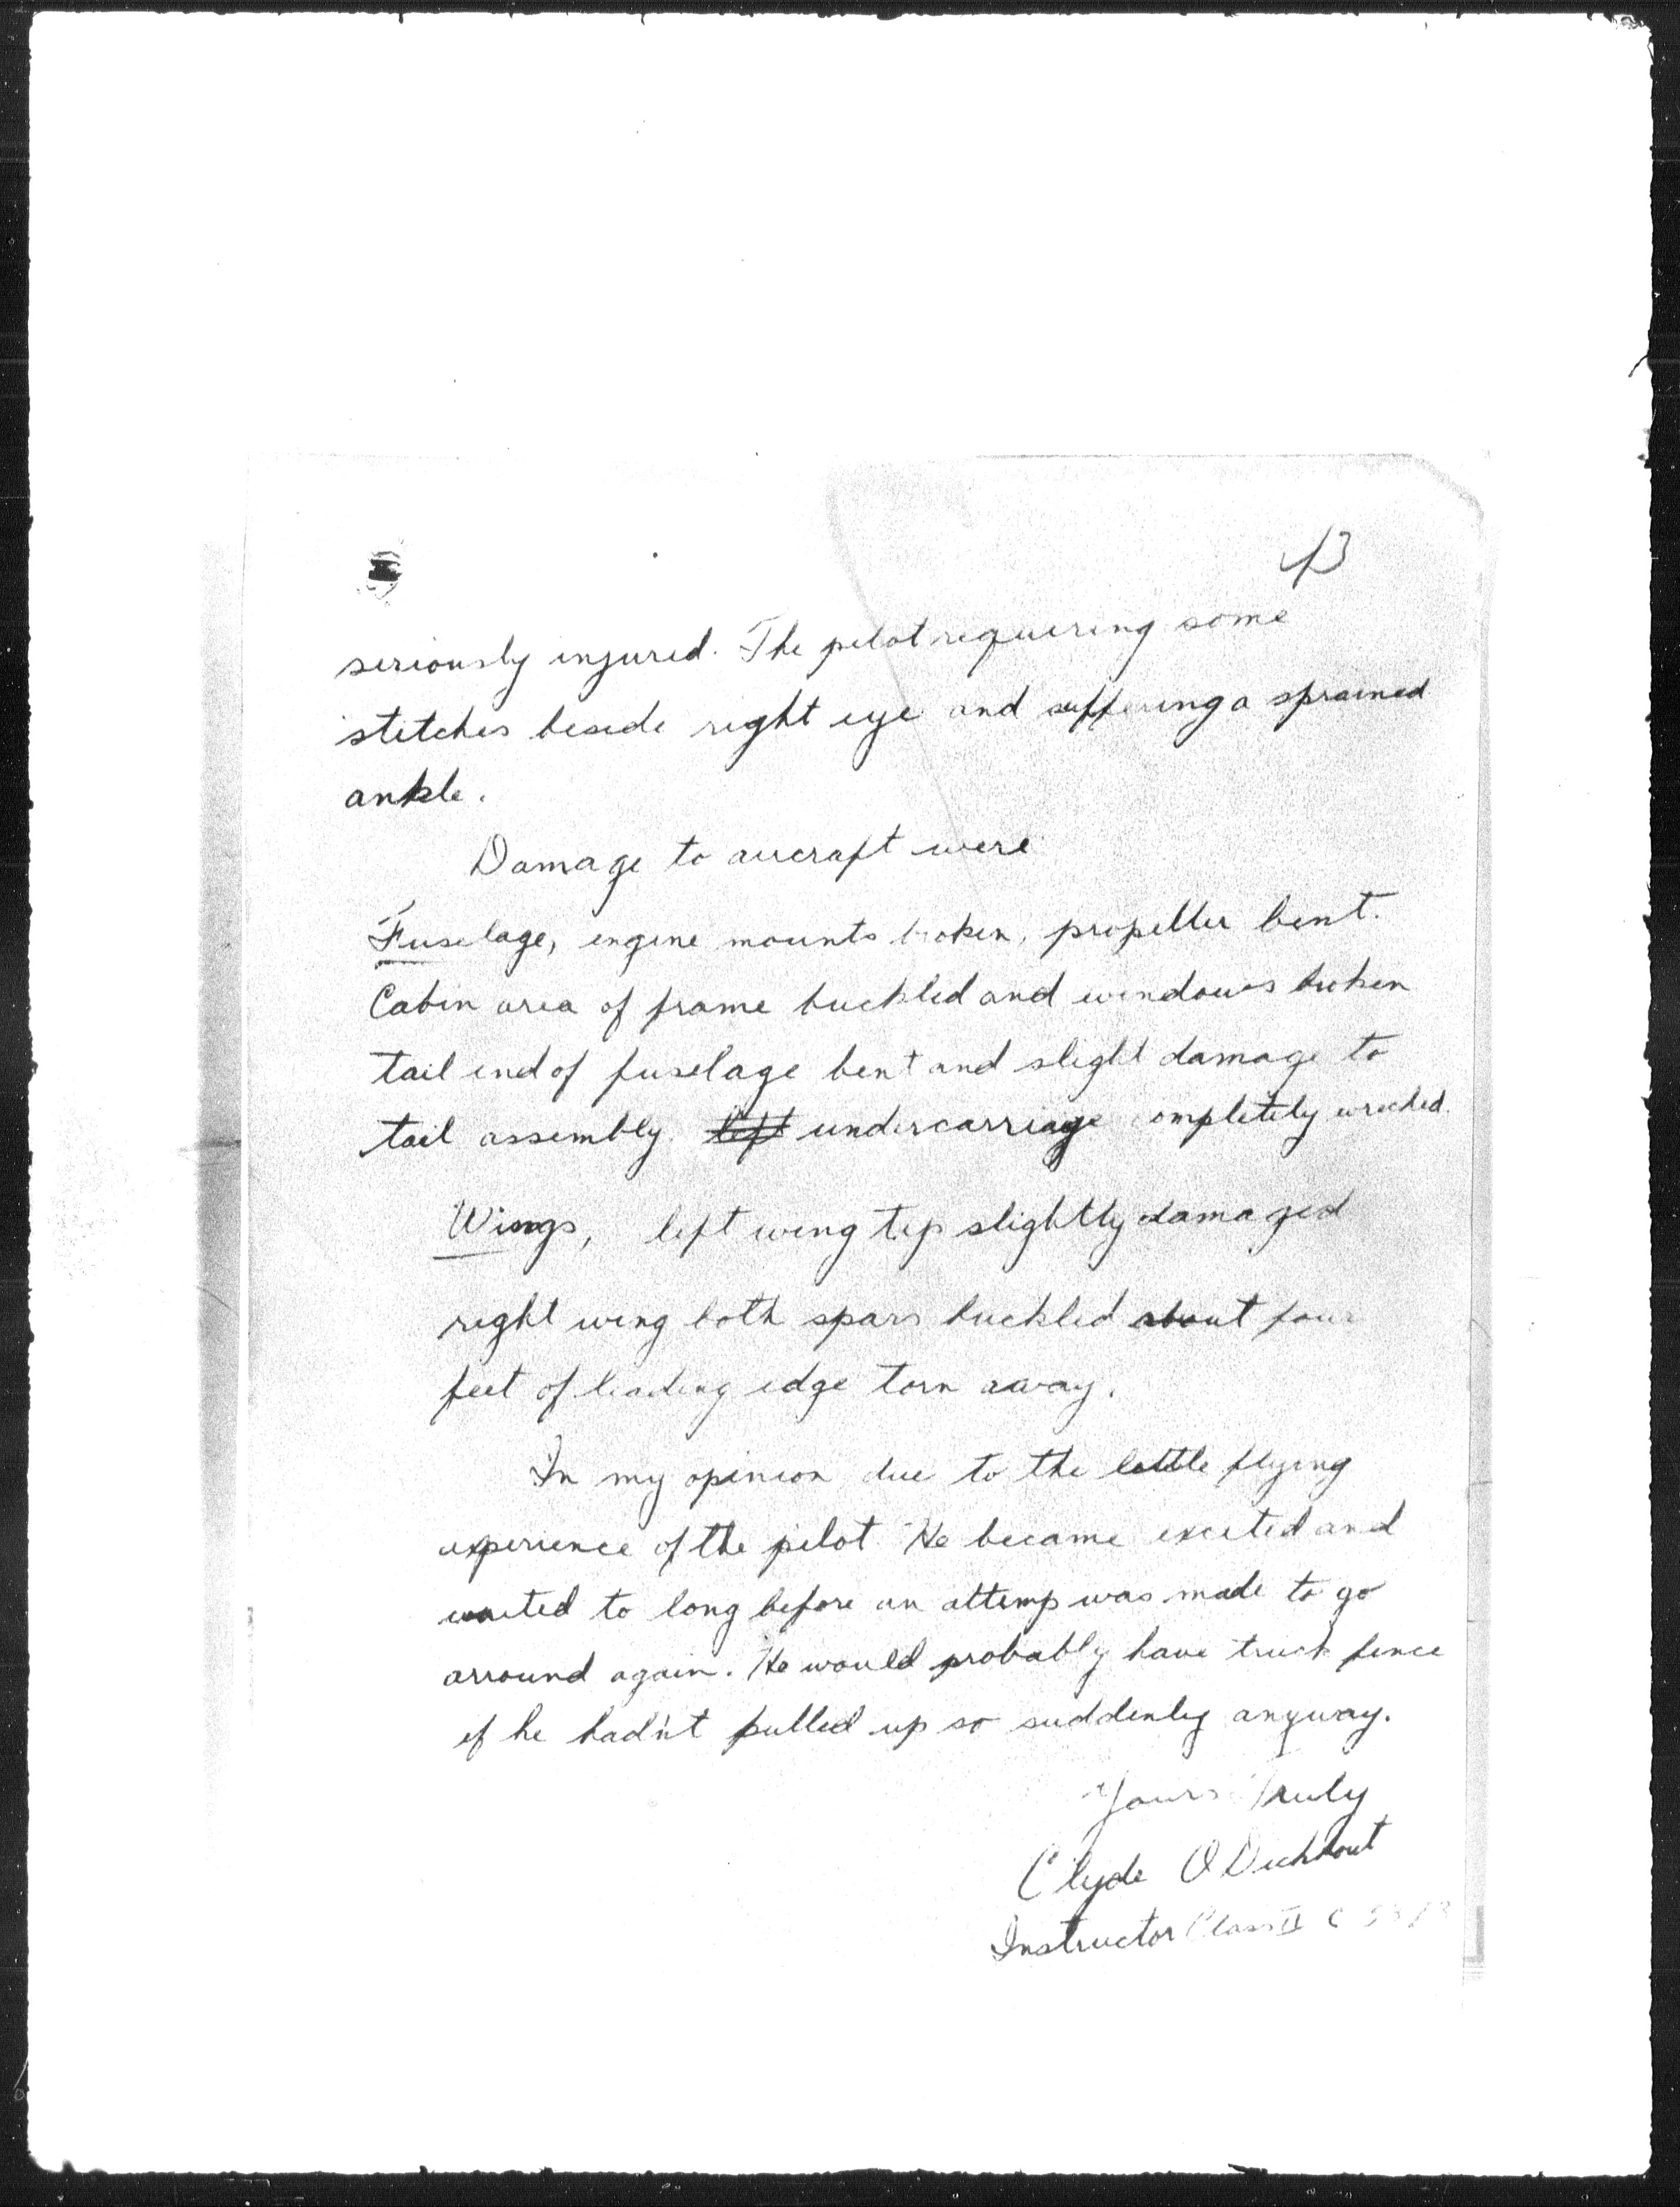 seriously injured. The pilot requiering some
stitches beside right eye and suffering a sprained
ankle.
Damage to aircraft were
Fuselage, engine mounts broken, propeller bent.
Cabin area of frame buckled and windows broken
tail end of fuselage bent and slight damage to
tail assembly. left undercarriage completely wrecked.
Wings, left wing tip slightly damaged
right wing both spars buckled about four
feet of leading edge torn away.
In my opinion due to the little flying
experience of the pilot. He became excited and
waited to long before an attemp was made to go
arround again. He would probably have truck fence
if he hadn't pulled up so suddenly anyway.
Yours Truly
Clyde O
Instructor Class II C